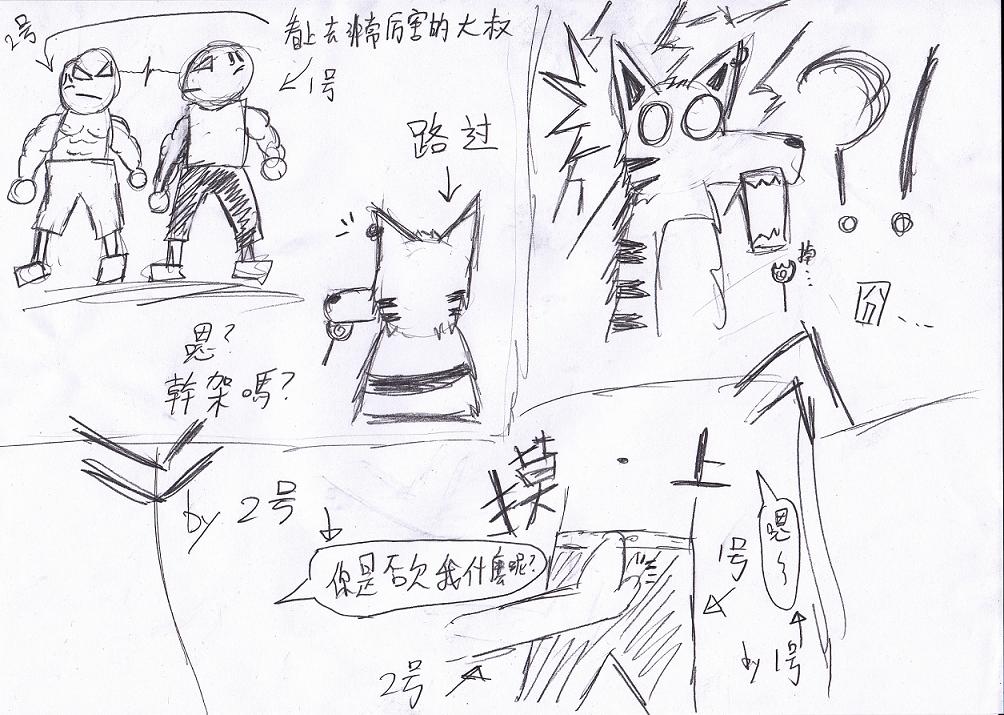 2号
看上去非常厉害的大叔
1号
路过
嗯?
幹架嗎?
?!
掉...
囧...
摸·上
by 2号
你是否欠我什麼呢?
嗯~
1号
by 1号
2号